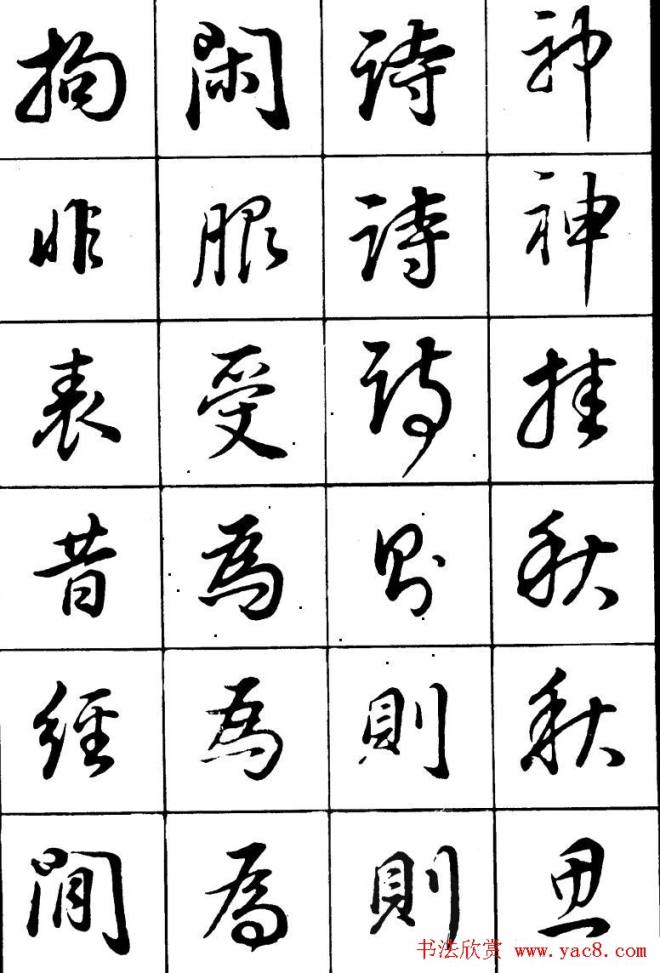 神神挂秋秋思
詩詩詩則則則
閑服受為為為
拘非表昔經閒
书法欣赏 www.yac8.com